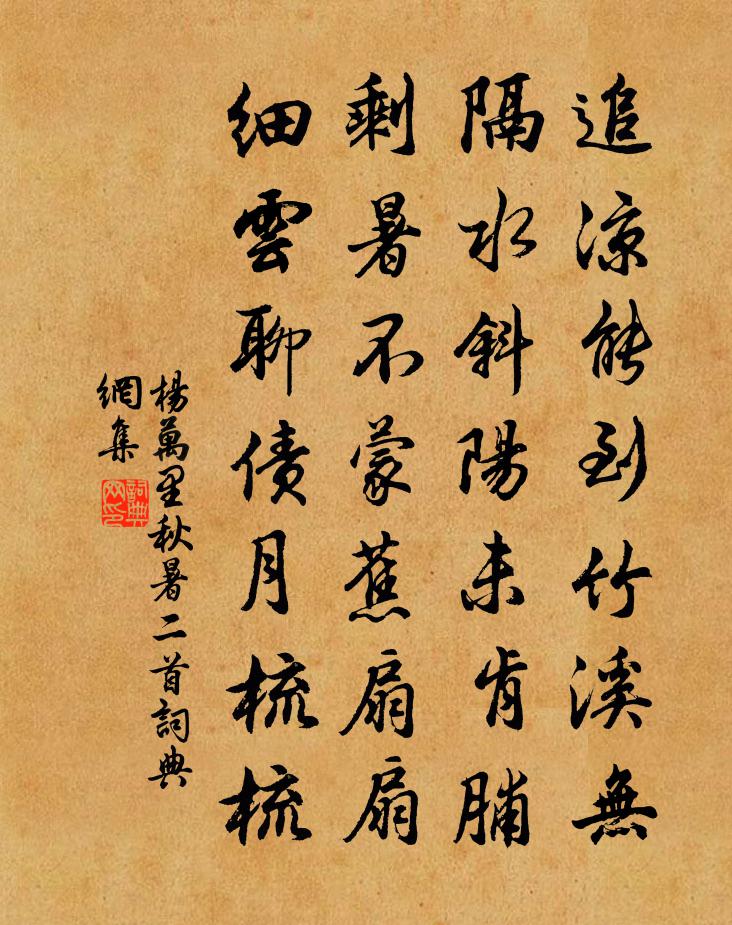 追涼能到竹溪無
隔水斜陽未肯晡
剩暑不蒙蕉扇扇
細雲聊債月梳梳
楊萬里秋暑二首詞典
網集
詞典
网印